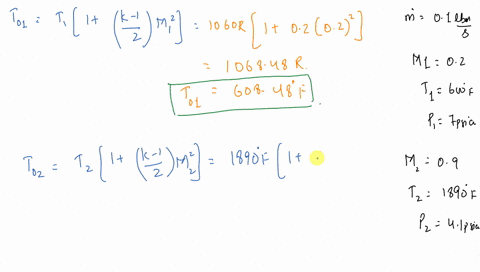 T01 = T1 [ 1 + ( k-1 / 2 ) M1² ] = 1060R [ 1 + 0.2 ( 0.2 )² ]
= 1068.48 R.
T01 = 608.48°F
T02 = T2 [ 1 + ( k-1 / 2 ) M2² ] = 1890°F [ 1 +
ṁ = 0.1 lbm/s
M1 = 0.2
T1 = 600°F
P1 = 7psia
M2 = 0.9
T2 = 1890°F
P2 = 4.1psia